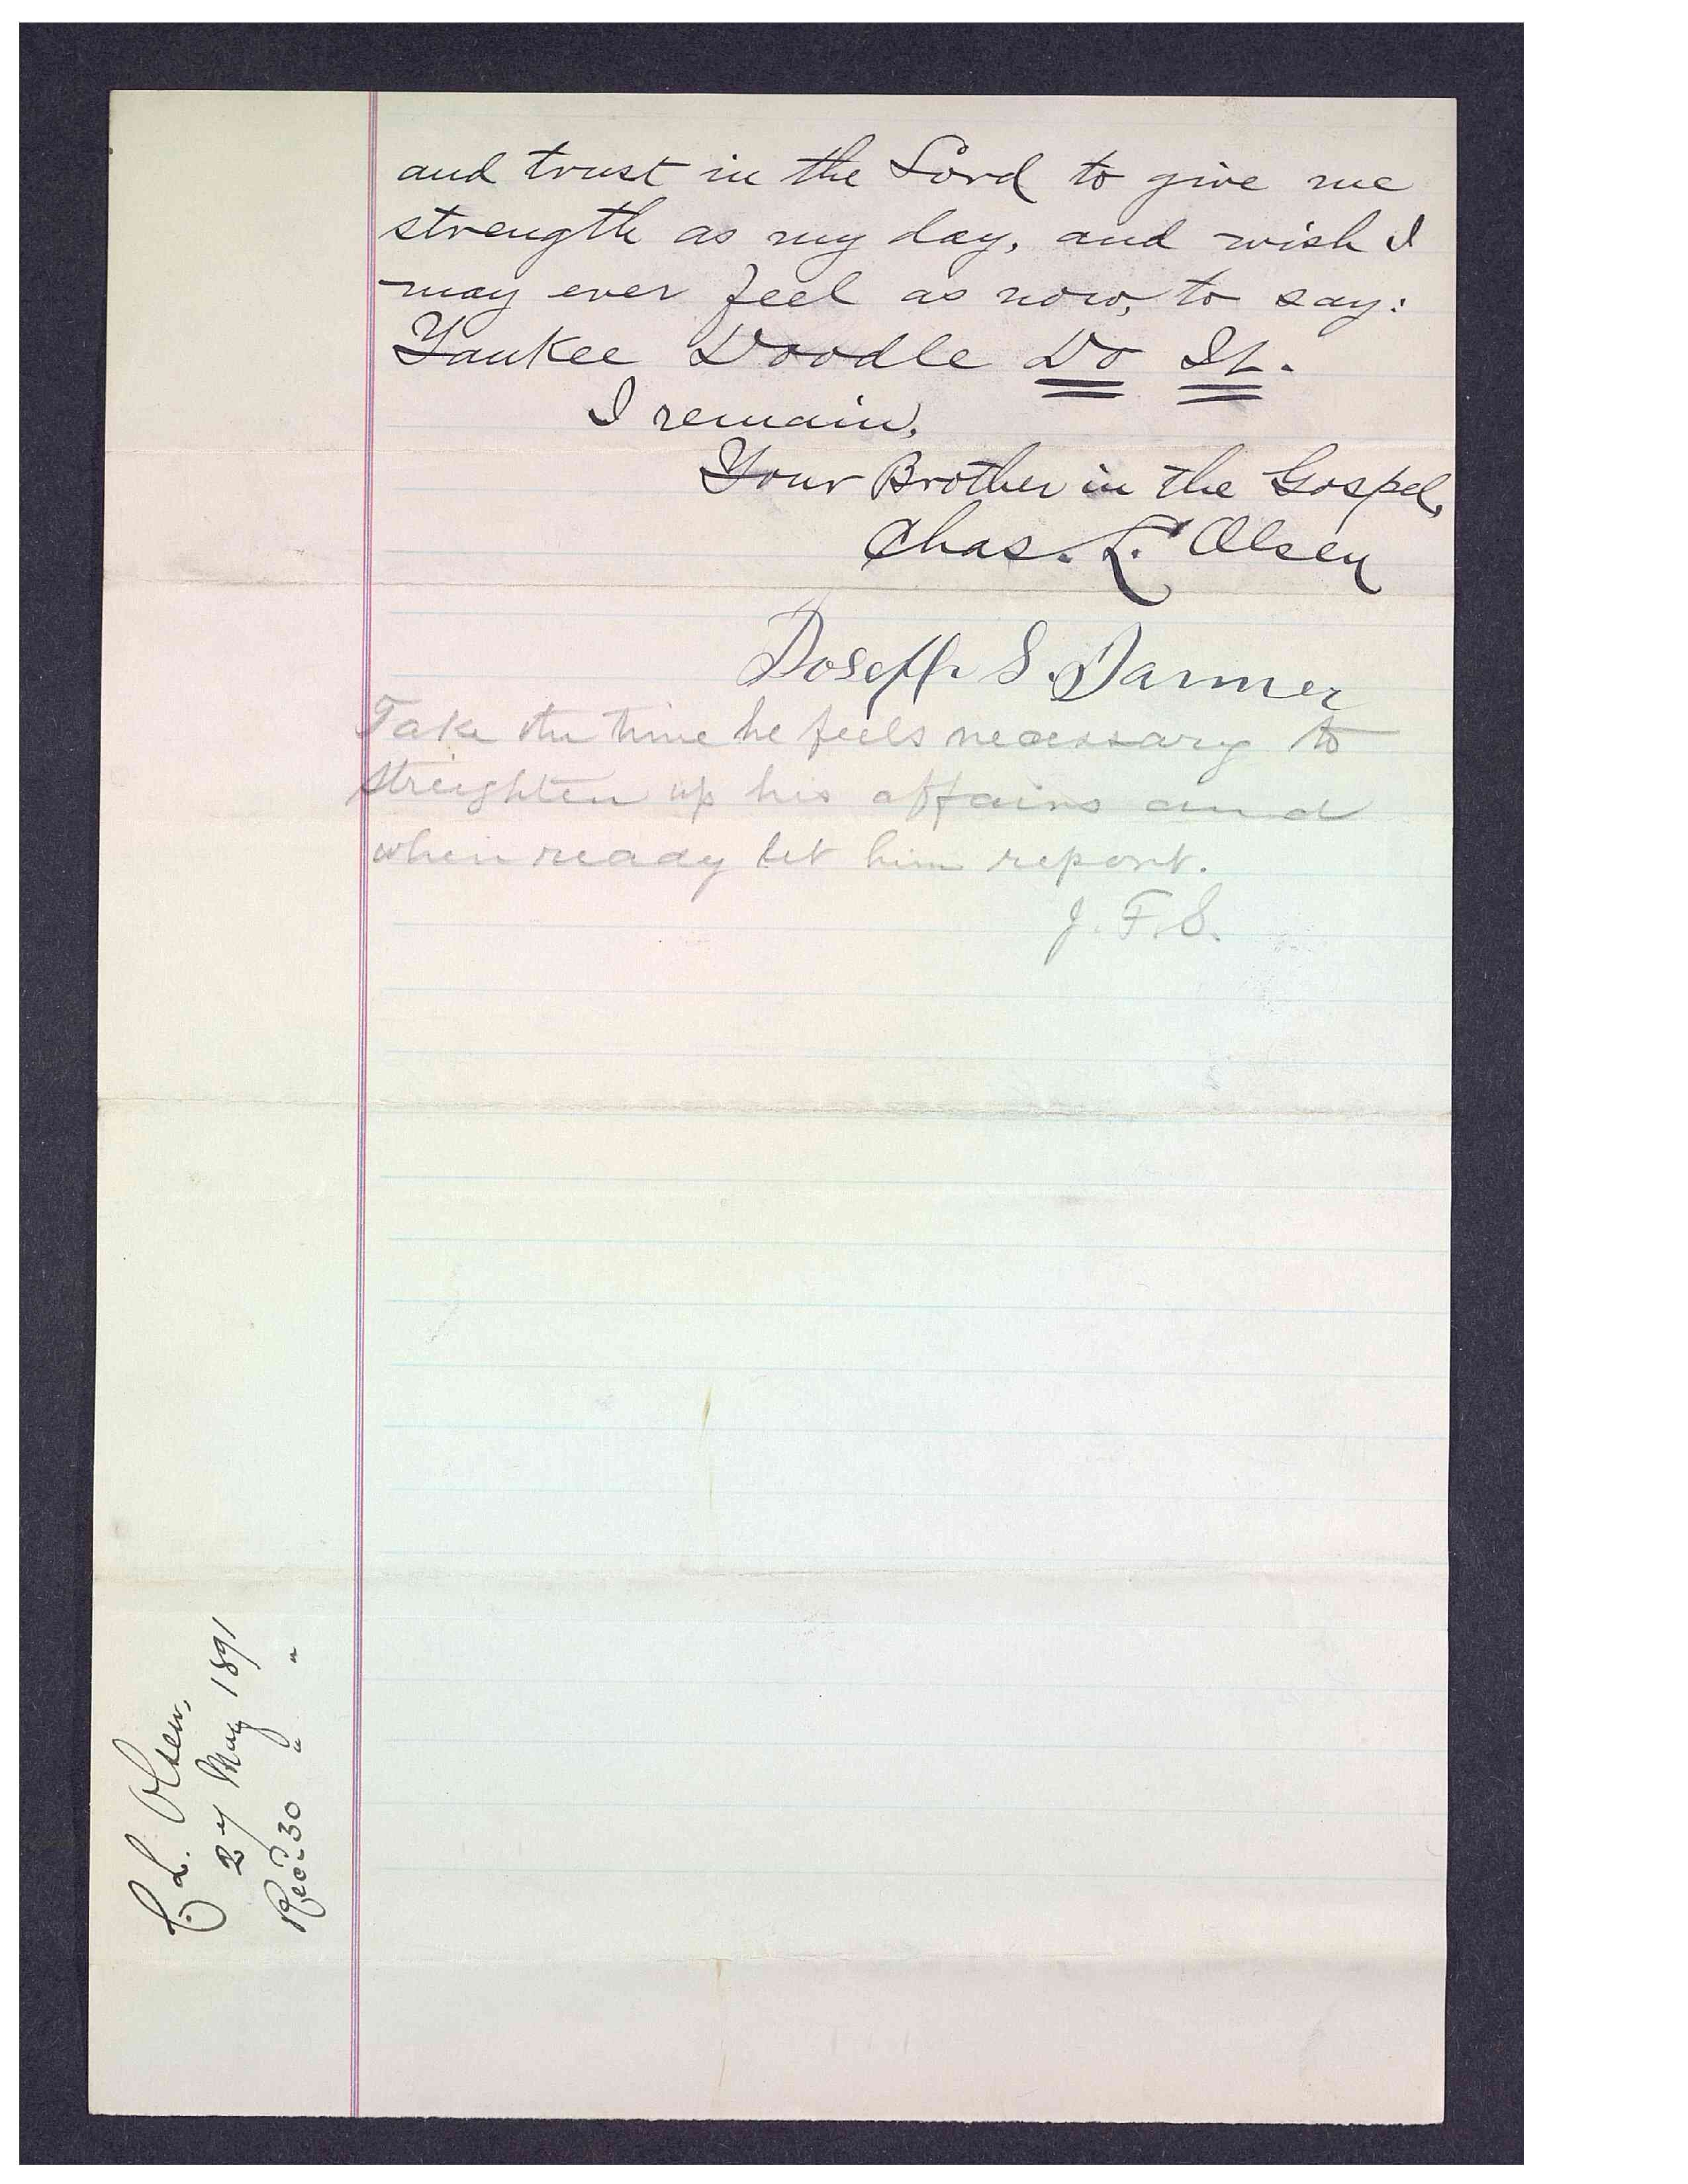 and trust in the Lord to give me
strength as my day, and wish I
may ever feel as now, to say:
Yankee Doodle Do It.
I remain,
Your Brother in the Gospel,
Chas. L. Olsen
Joseph S. Darmer
Take the time he feels necessary to
streighten up his affairs and
when ready let him report.
J. F. S.
C. L. Olsen,
27 May 1891
Recd 30 " "